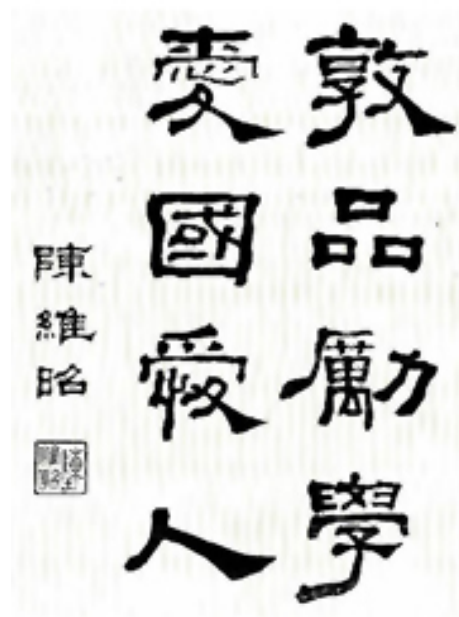 敦品勵學
愛國愛人
陳維昭